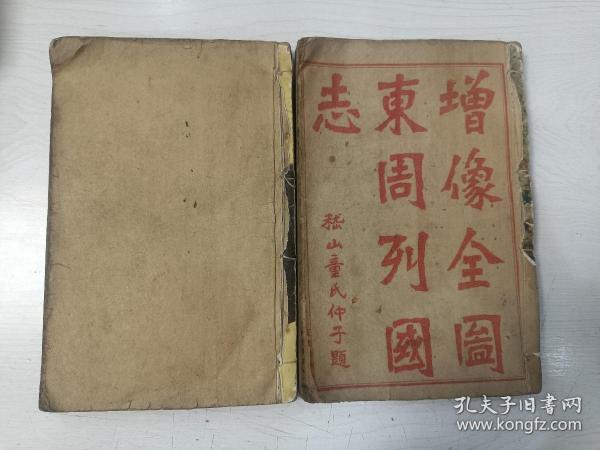 增像全圖
東周列國
志
嵇山童氏仲子題
孔夫子旧書网
www.kongfz.com